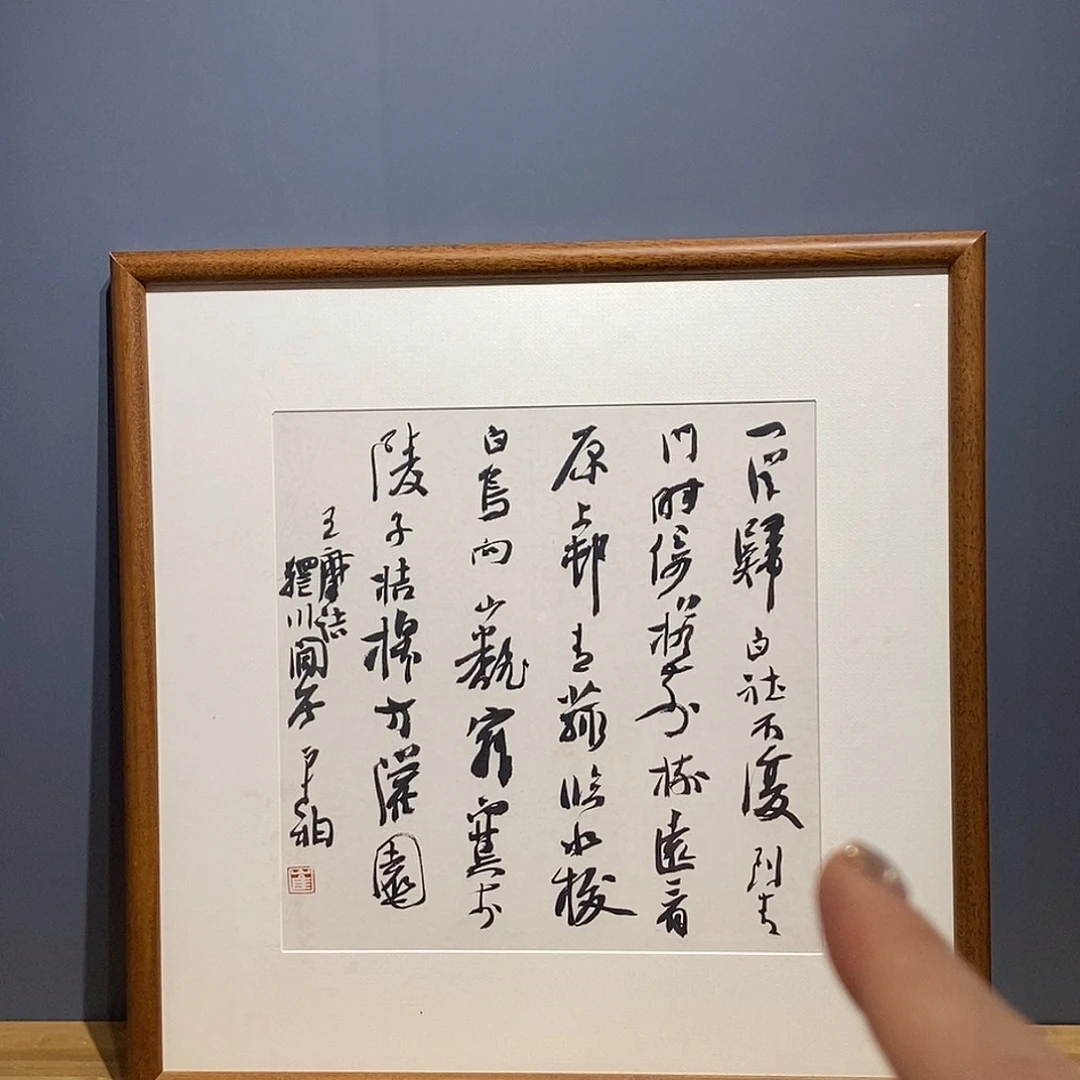 一從歸白社不復到青
門時倚檐前樹遠看
原上邨青菰臨水拔
白鳥向山翻寂寞於
陵子桔槔方灌園
王摩詰
輞川閒居